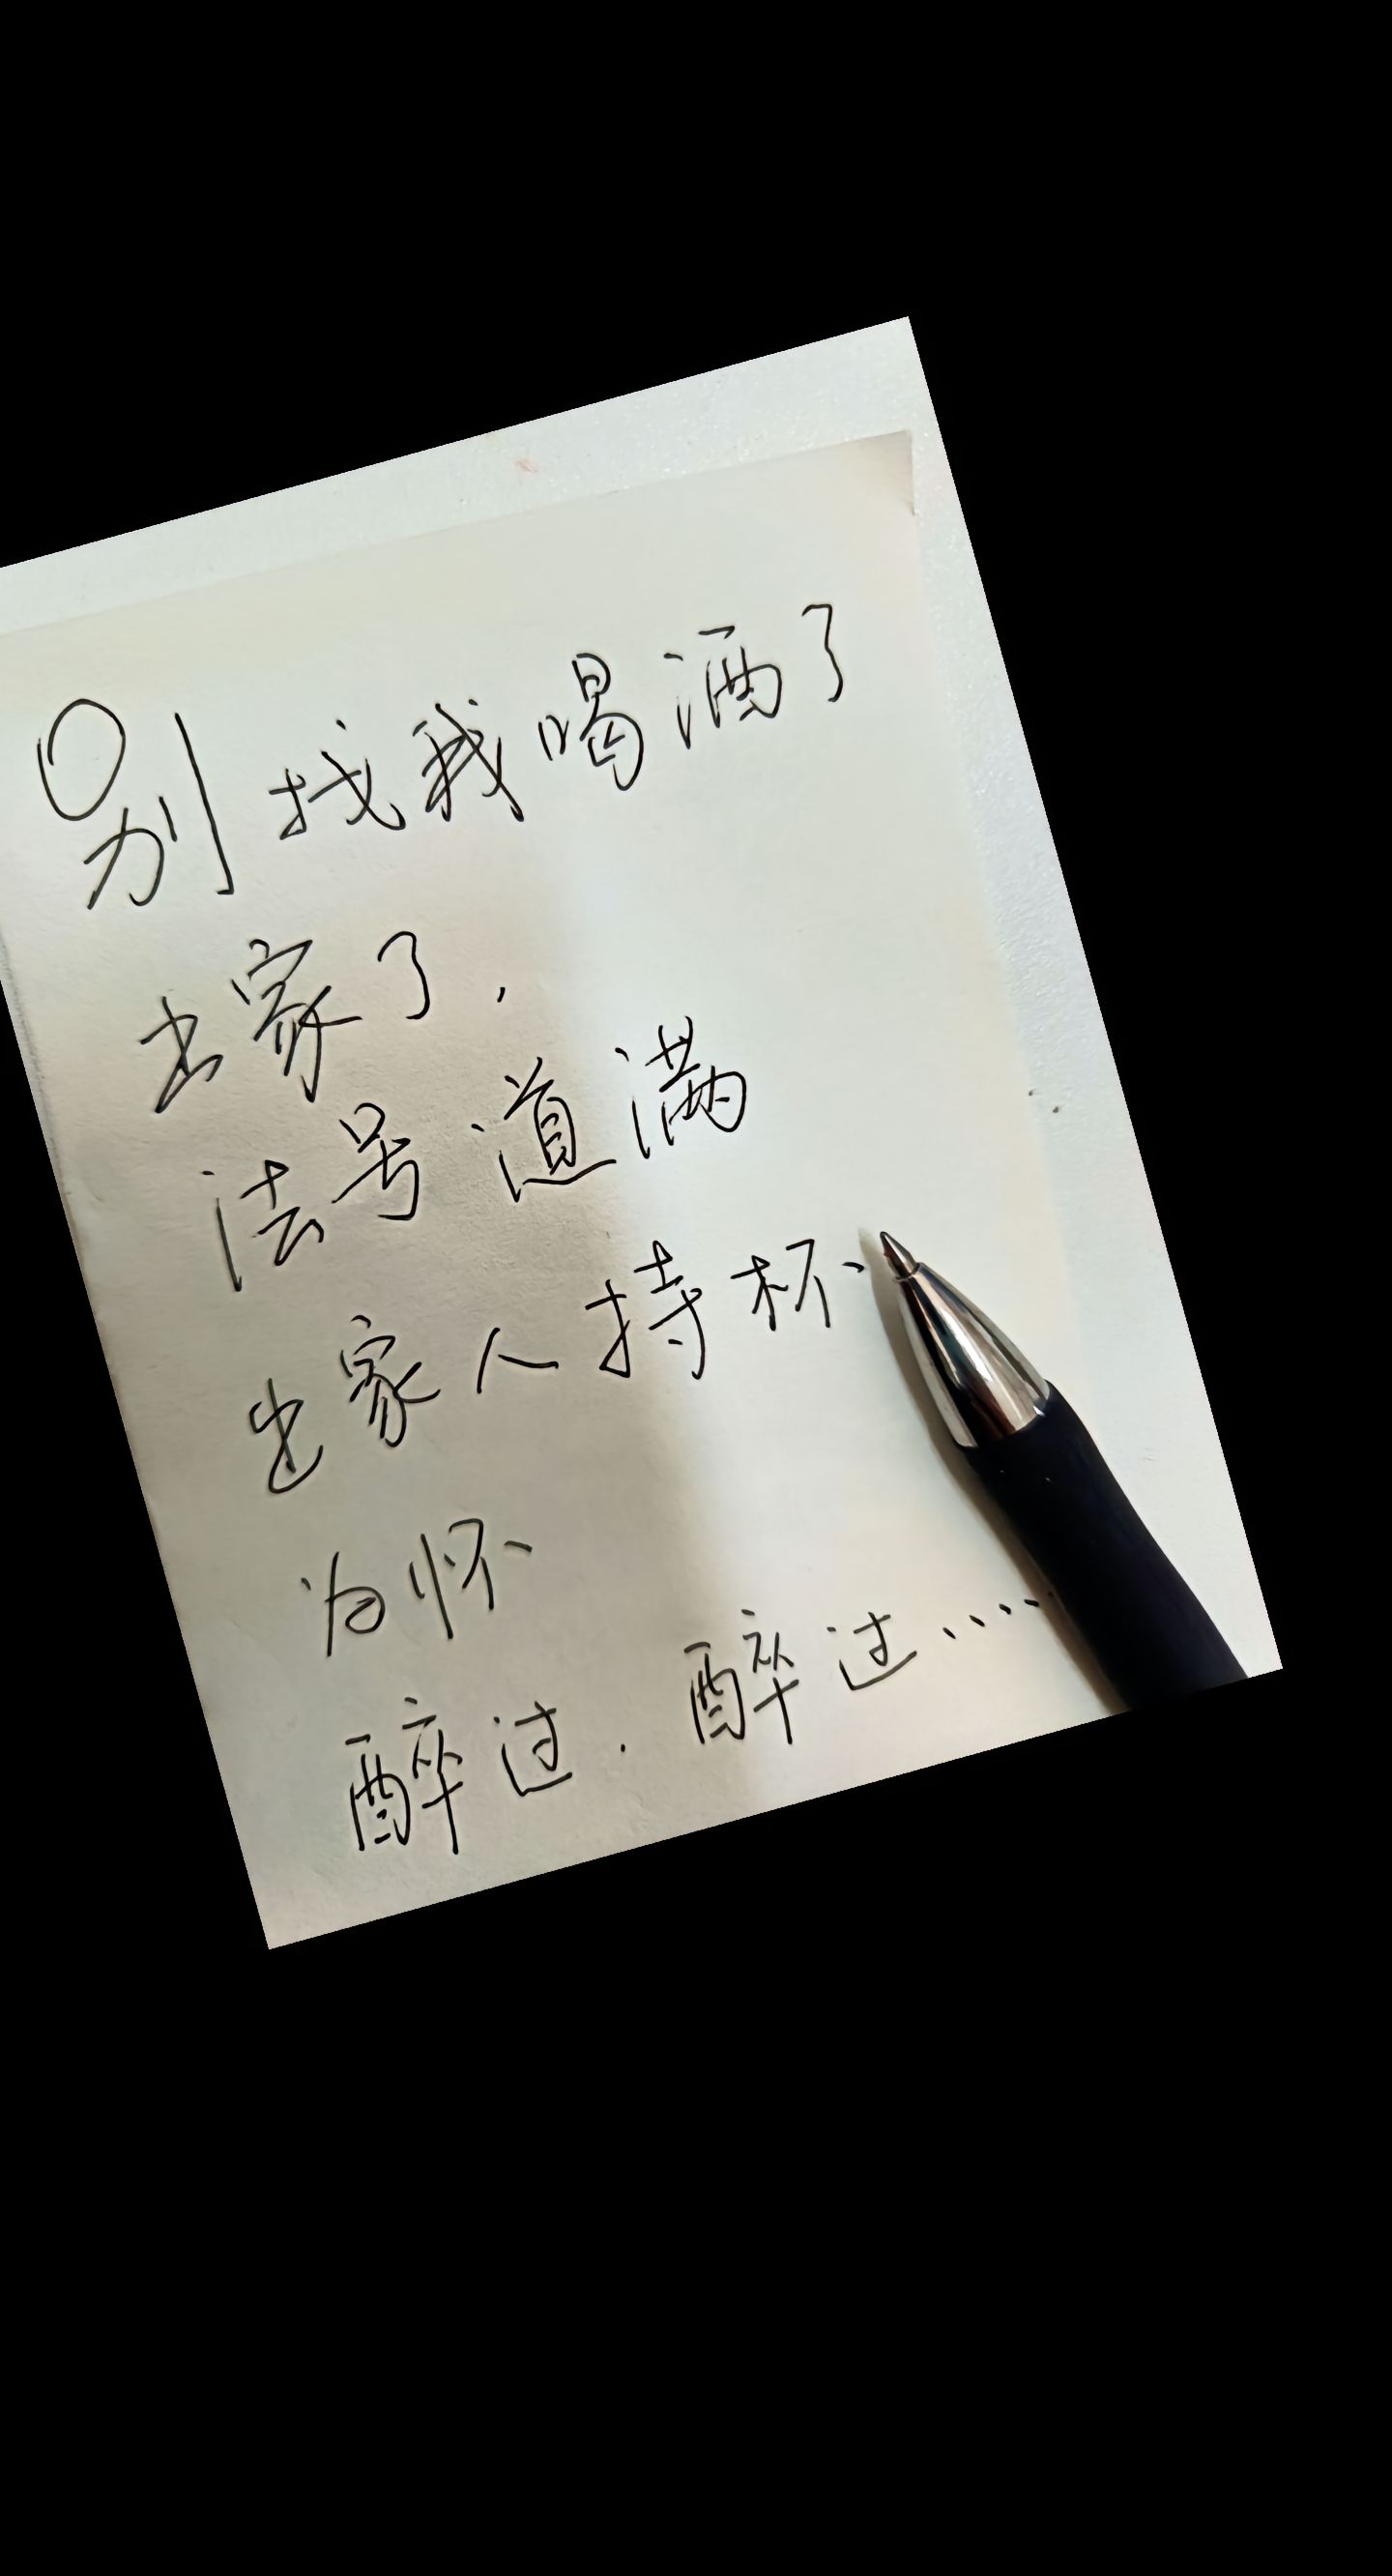 别找我喝酒了
出家了,
法号道满
出家人持杯
为怀
醉过.醉过....